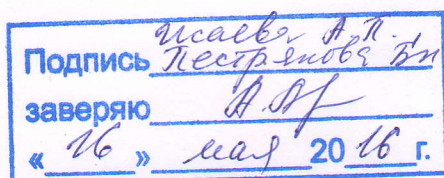 Исаева А.П.
Подпись Пестрякова Б.Н
заверяю
«26» мая 2016 г.